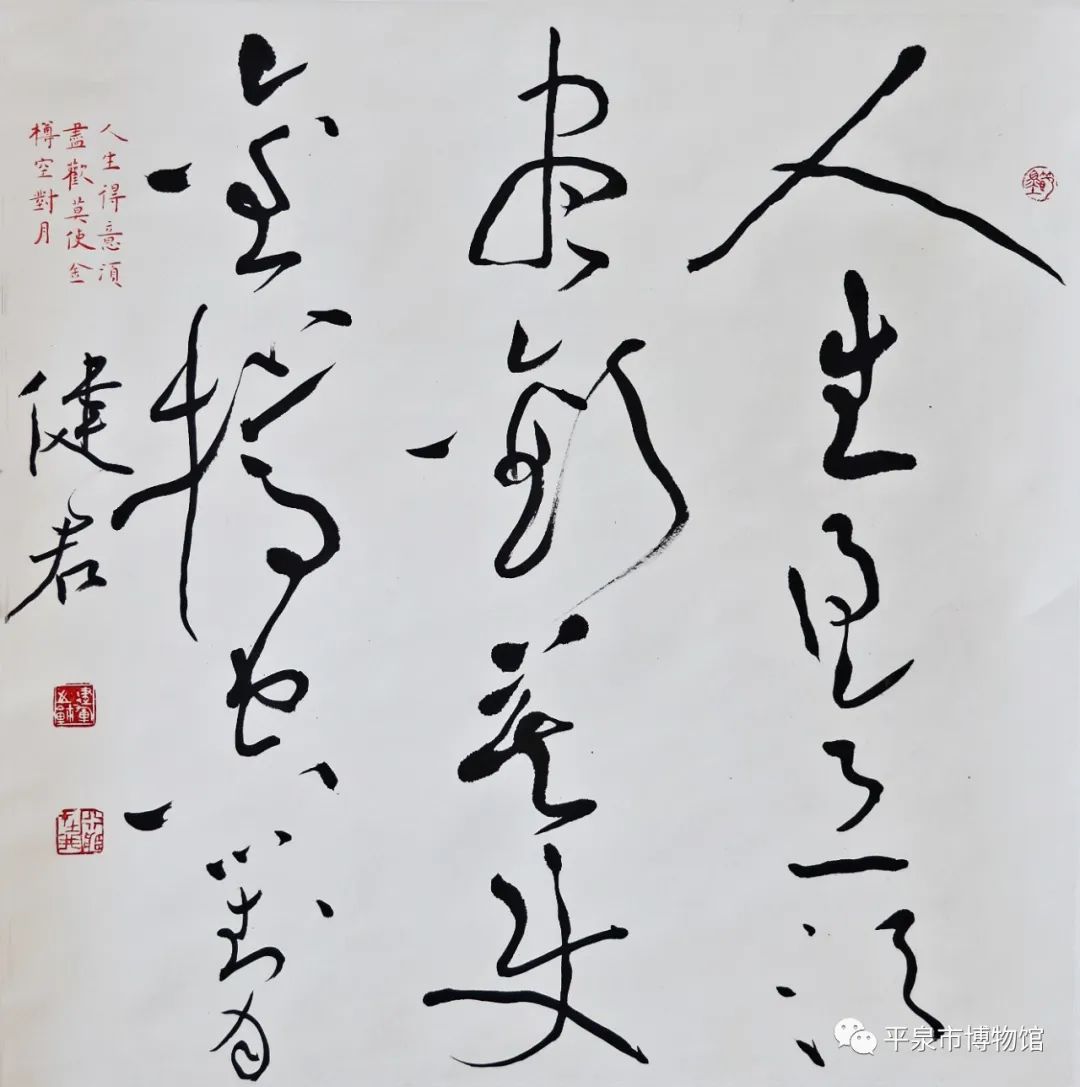 人生得意须
尽欢莫使
金樽空对月
人生得意須
盡歡莫使金
樽空對月
健君
平泉市博物馆